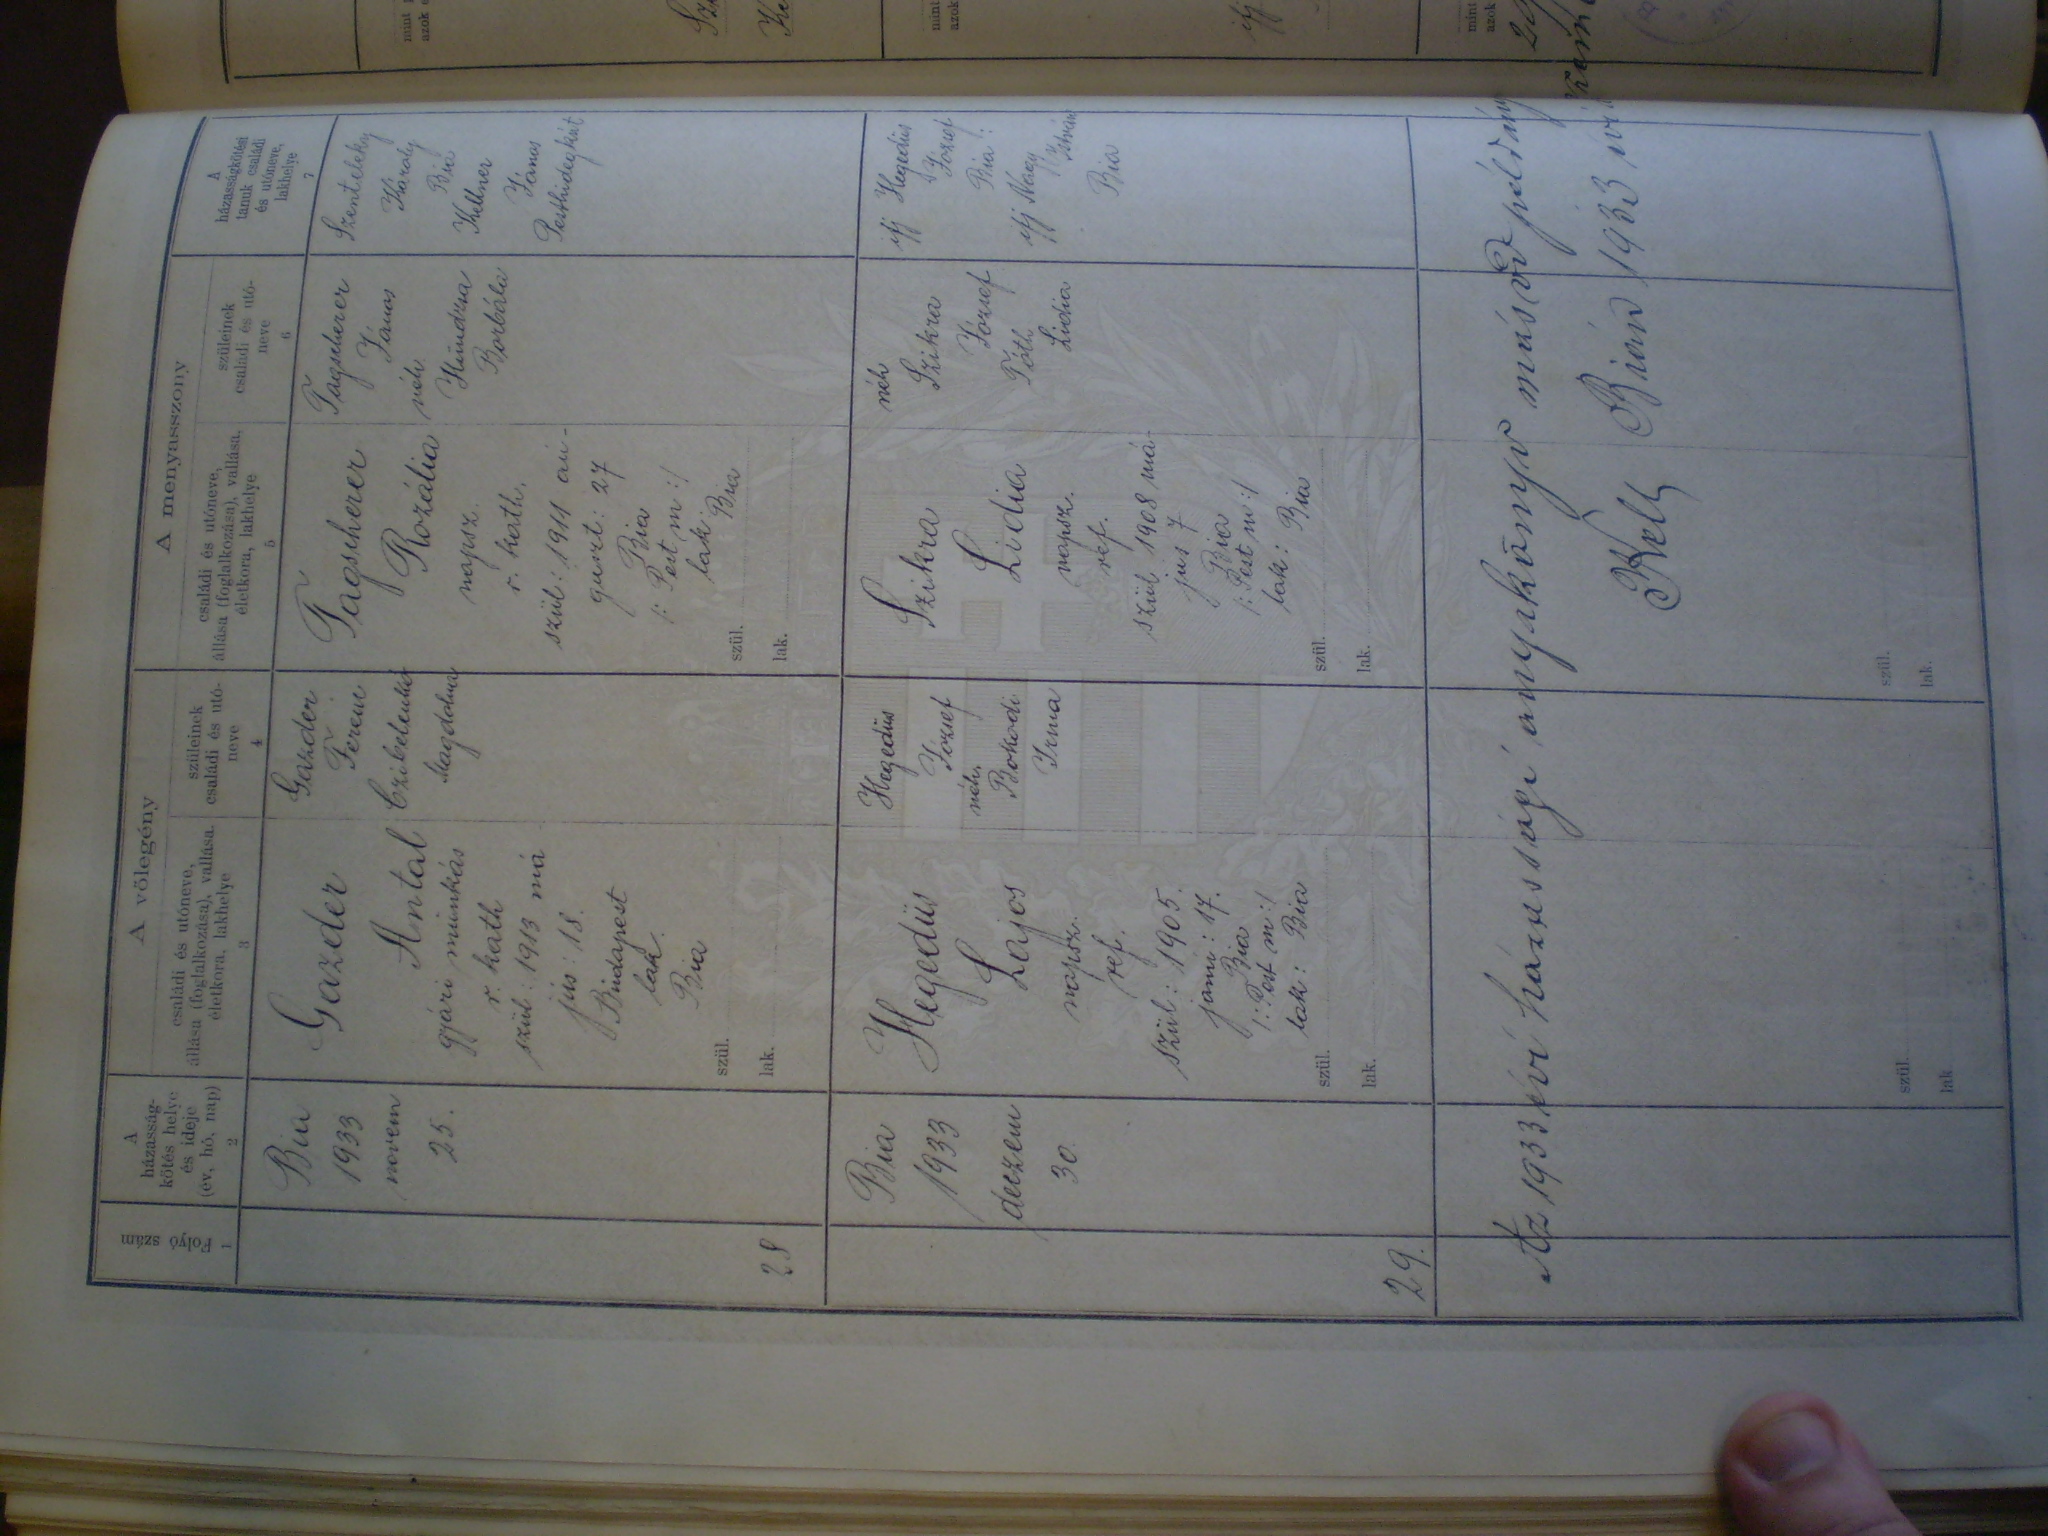 Folyó szám
1
A
házasság-
kötés helye
és ideje
(év, hó, nap)
2
A vőlegény
családi és utóneve,
állása (foglalkozása), vallása,
életkora, lakhelye
3
szüleinek
családi és utó-
neve
4
A menyasszony
családi és utóneve,
állása (foglalkozása), vallása,
életkora, lakhelye
5
szüleinek
családi és utó-
neve
6
A
házasságkötési
tanuk családi
és utóneve,
lakhelye
7
28
Bia
1933
novem
25.
Gazder
Antal
gyári munkás
r. kath
szül: 1913 má
jus: 18.
Budapest
lak.
Bia
szül.
lak.
Gazder
Ferenc
Magdolna
Tagscherer
Rozália
napsz.
r. kath.
szül: 1911 au-
guszt: 27
Bia
/: Pest m :/
lak: Bia
szül.
lak.
Tagscherer
János
néh.
Borbála
Szenteleky
Károly
Bia
Kellner
János
Pesthidegkút
29.
Bia
1933
deczem
30.
Hegedüs
Lajos
napsz.
ref.
szül: 1905.
janu: 17.
Bia
/: Pest m :/
lak: Bia
szül.
lak.
Hegedüs
József
néh.
Bokodi
Irma
Szikra
Lidia
napsz.
ref.
szül 1908 má-
jus 7
Bia
/: Pest m :/
lak: Bia
szül.
lak.
néh
Szikra
József
Tóth
Lidia
ifj Hegedüs
József
Bia:
ifj Nagy
István
Bia
Az 1933 évi házassági anyakönyv másod
Kelt Bián 1933 évi
szül.
lak.
szül.
lak.